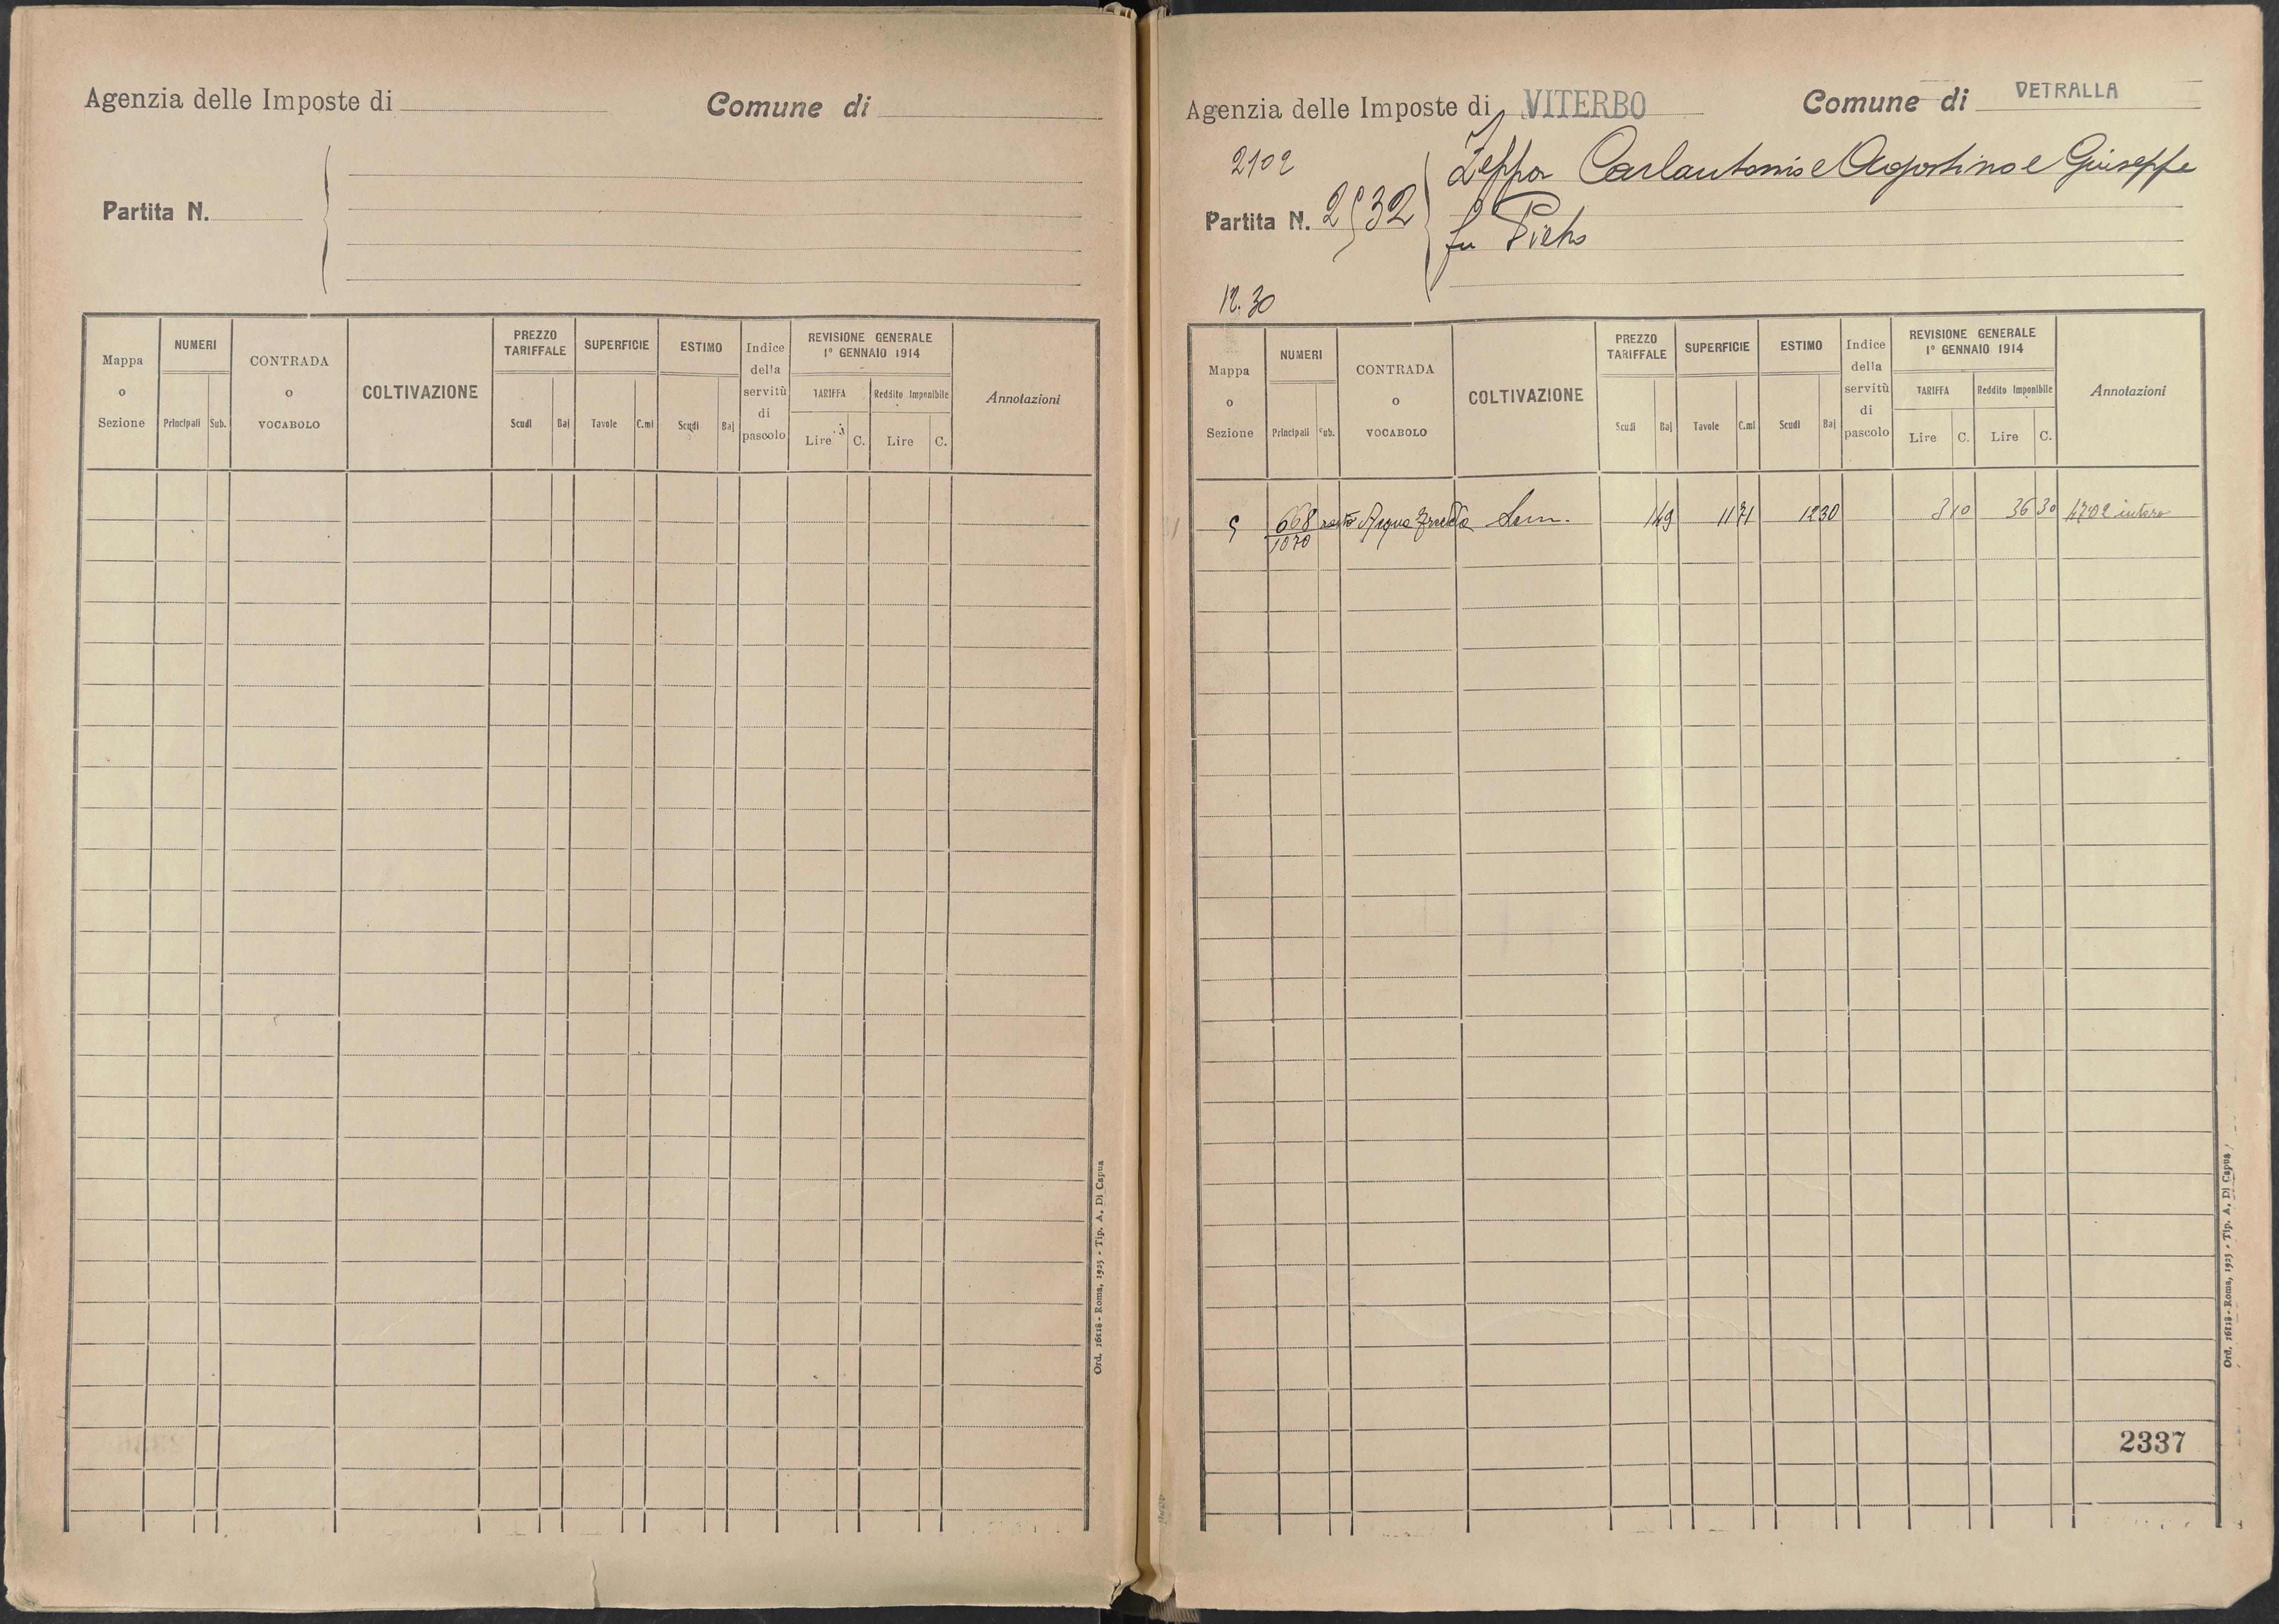 Agenzia delle Imposte di
Comune di
Partita N.
Mappa o Sezione
NUMERI
Principali
Sub.
CONTRADA o VOCABOLO
COLTIVAZIONE
PREZZO TARIFFALE
Scudi
Baj
SUPERFICIE
Tavole
C.mi
ESTIMO
Scudi
Baj
Indice della servitù di pascolo
REVISIONE GENERALE
1° GENNAIO 1914
TARIFFA
Reddito Imponibile
Lire
C.
Lire
C.
Annotazioni
Ord. 16118 - Roma, 1925 - Tip. A. Di Capua
Agenzia delle Imposte di VITERBO
Comune di VETRALLA
2102
Zeppa Carlantonio e Agostino e Giuseppe
Partita N. 2532
fu Pietro
12.30
Mappa o Sezione
NUMERI
Principali
Sub.
CONTRADA o VOCABOLO
COLTIVAZIONE
PREZZO TARIFFALE
Scudi
Baj
SUPERFICIE
Tavole
C.mi
ESTIMO
Scudi
Baj
Indice della servitù di pascolo
REVISIONE GENERALE
1° GENNAIO 1914
TARIFFA
Reddito Imponibile
Lire
C.
Lire
C.
Annotazioni
5 668 resto Acqua fredda Sem. 1 49 11 71 12 30 3 10 36 30 1702 intero
1070
2337
Ord. 16118 - Roma, 1925 - Tip. A. Di Capua